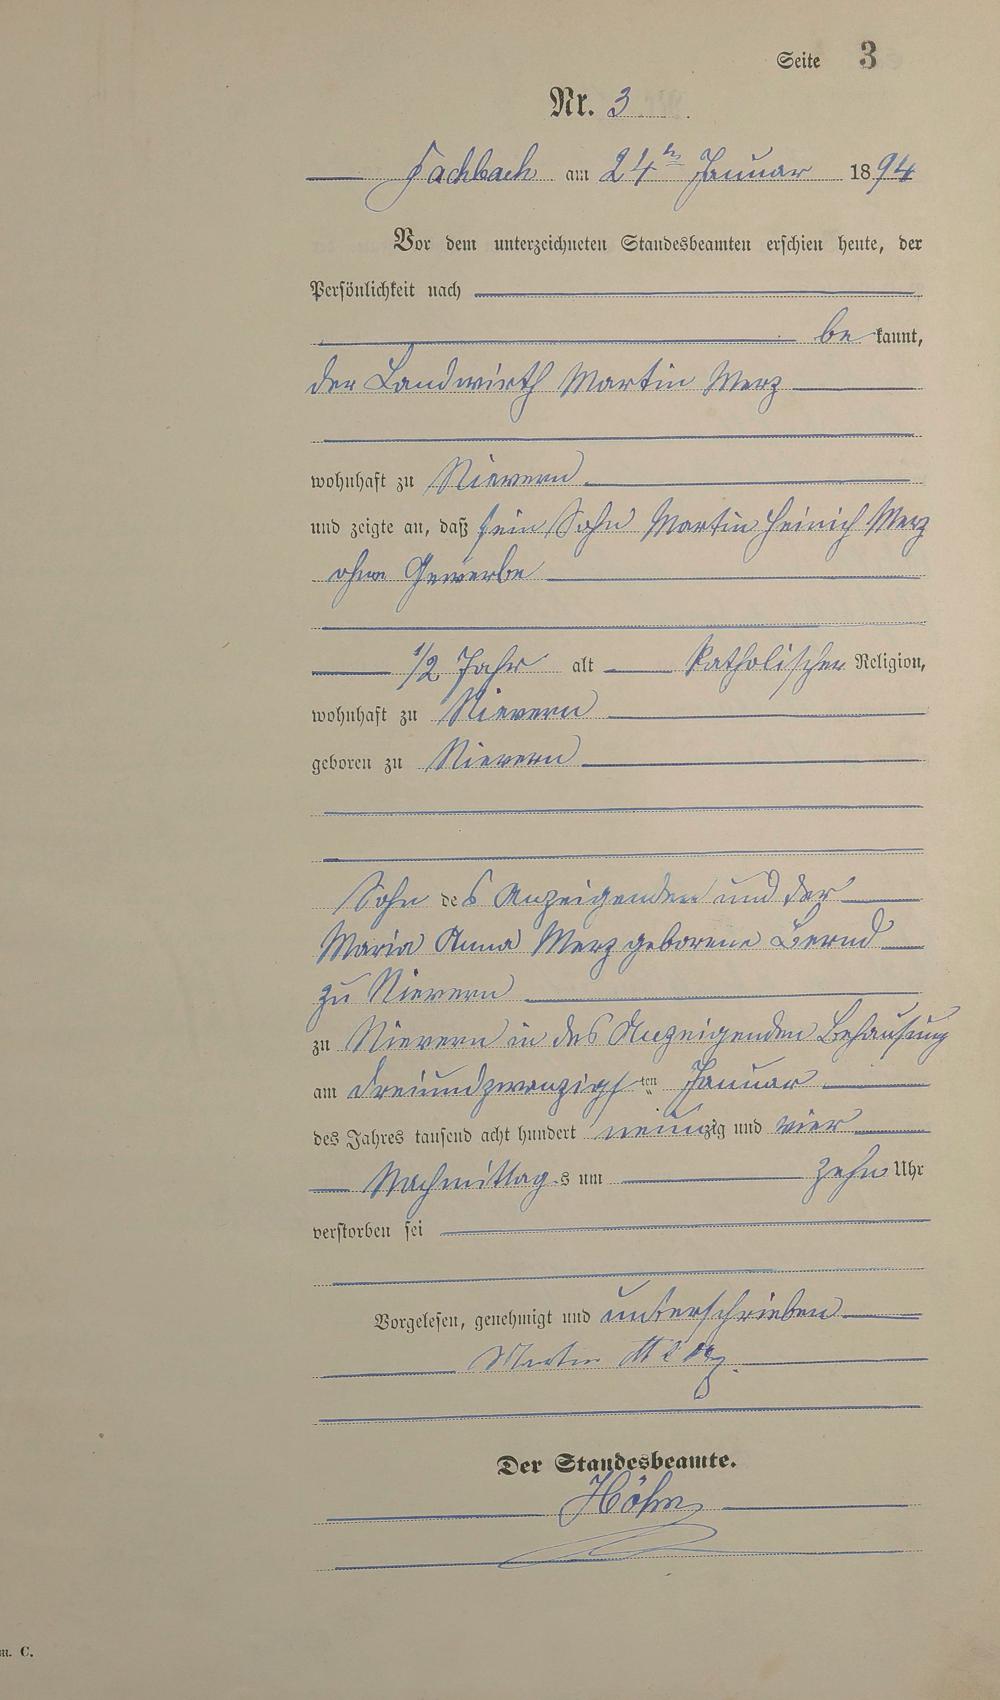 Seite 3
Nr. 3
Fachbach am 24ten Januar 1894
Vor dem unterzeichneten Standesbeamten erschien heute, der
Persönlichkeit nach
be kannt,
der Landwirth Martin Merz
wohnhaft zu Nievern
und zeigte an, daß sein Sohn Martin Heinich Merz
ohne Gewerbe
1/2 Jahr alt katholischer Religion,
wohnhaft zu Nievern
geboren zu Nievern
Sohn des Anzeigenden und der
Maria Anna Merz geborene Bernd
zu Nievern
zu Nievern in des Anzeigenden Behausung
am dreiundzwanzigsten Januar
des Jahres tausend acht hundert neunzig und vier
Nachmittags um zehn Uhr
verstorben sei
Vorgelesen, genehmigt und unterschrieben
Martin Merz.
Der Standesbeamte.
Höhn
m. C.